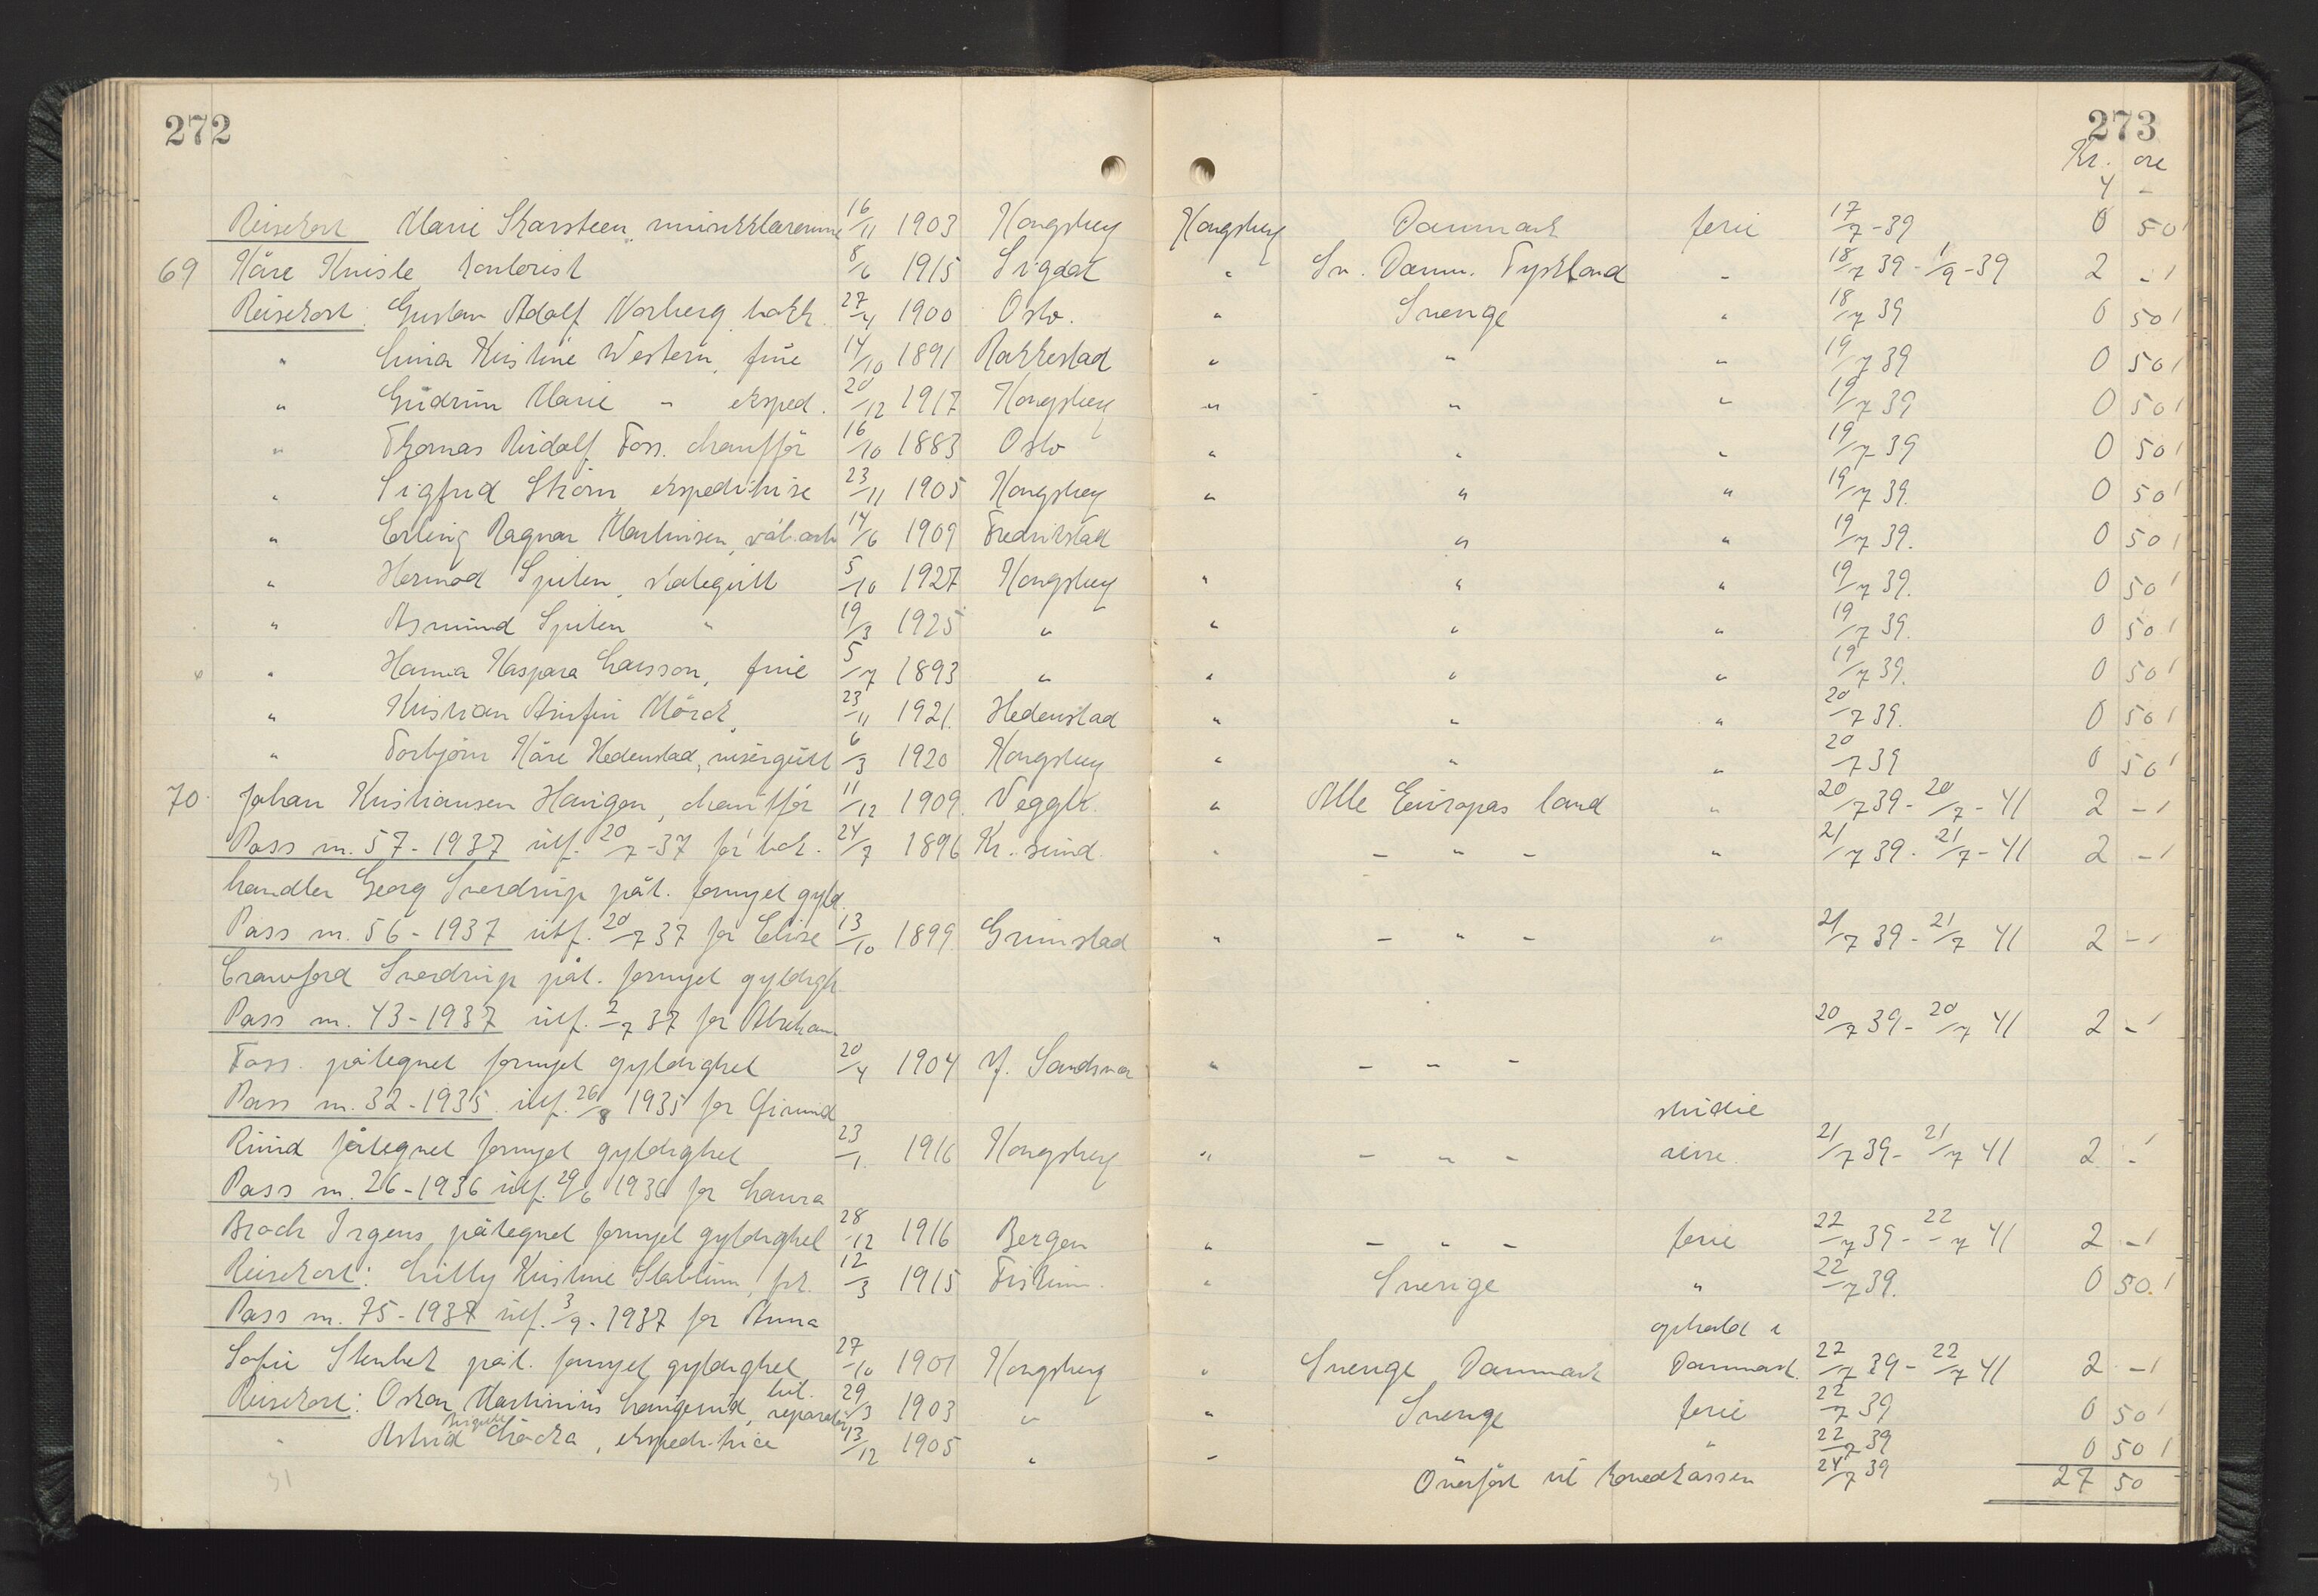 272 273
Kr. øre
4 -
Reisekort Marie Skarsteen, musikklærerinne 16/11 1903 Kongsberg Kongsberg Danmark ferie 17/7-39 0 50
69 Kåre Knisle kontorist 8/6 1915 Sigdal " Sv. Danm. Tyskland - 18/7 39 - 1/9-39 2 -
Reisekort: Gustav Adolf Norberg 27/4 1900 Oslo. " Sverige " 18/7 39 0 50
" Kristine Western, frue 14/10 1891 Rakkestad " " " 19/7 39 0 50
" Gudrun Marie " eksped. 20/12 1917 Kongsberg " " " 19/7 39 0 50
" Thomas Rudolf Foss. chauffør 16/10 1883 Oslo " " " 19/7 39 0 50
" Sigfrid Strøm ekspeditrise 23/11 1905 Kongsberg " " " 19/7 39. 0 50
" Erling Ragnar Martinsen, våb.arb 14/6 1909 Fredrikstad " " 19/7 39. 0 50
" Hermod Spiten, skolegutt 5/10 1927 Kongsberg " " " 19/7 39. 0 50
" Asmund Spiten " 19/3 1925 " " " " 19/7 39. 0 50
" Hanna Kaspara Larsson, frue 5/7 1893 " " " " 19/7 39. 0 50
" Kristian Arnfin Mörck, 23/11 1921. Hedenstad " " " 20/7 39. 0 50
" Torbjørn Kåre Hedenstad, visergutt 6/3 1920 Kongsberg " " " 20/7 39 0 50
70 Johan Kristiansen Haugen, chauffør 11/12 1909. Veggli. " Alle Europas land " 20/7 39 - 20/7 - 41 2 -
Pass nr. 57 - 1937 utf. 20/7-37 for bok- 24/7 1896 Kr. sund " - " - " 21/7 39 - 21/7 - 41 2 -
handler Georg Sverdrup påt. fornyet gyld.
Pass nr. 56 - 1937 utf. 20/7 37 for Elise 13/10 1899 Grimstad " - " - " 21/7 39 - 21/7 41 2 -
Crawford Sverdrup påt. fornyet gyldigh.
Pass nr. 43 - 1937 utf. 2/7 37 for Abraham 20/7 39 - 20/7 41 2 -
Foss. påtegnet fornyet gyldighet 20/4 1904 Y. Sandsvær " - " -
Pass nr. 32 - 1935 utf. 26/8 1935 for Gunnid studie
Rund påtegnet fornyet gyldighet 23/1 1916 Kongsberg " - " - reise. 21/7 39 - 21/7 41 2 -
Pass nr. 26 - 1936 utf. 29/6 1936 for Laura
Broch Irgens påtegnet fornyet gyldighet 28/12 1916 Bergen " - " - ferie 22/7 39 - 22/7 41 2 -
Reisekort: Lilly Kristine Stablum, frk. 12/3 1915 Fiskum. " Sverige " 22/7 39. 0 50
Pass nr. 75 - 1937 utf. 3/9 - 1937 for Anna ophold i
Sofie Stenbek påt. fornyet gyldighet 27/10 1901 Kongsberg " Sverige Danmark Danmark. 22/7 39 - 22/7 41 2 -
Reisekort: Oskar Martinius Laugerud, bil. reparatør 29/3 1903 " " Sverige ferie 22/7 39 0 50
" Astrid Birgitte, ekspeditrice 13/12 1905 " " " 22/7 39 0 50
31 Överført til hovedkassen 24/7 39 27 50